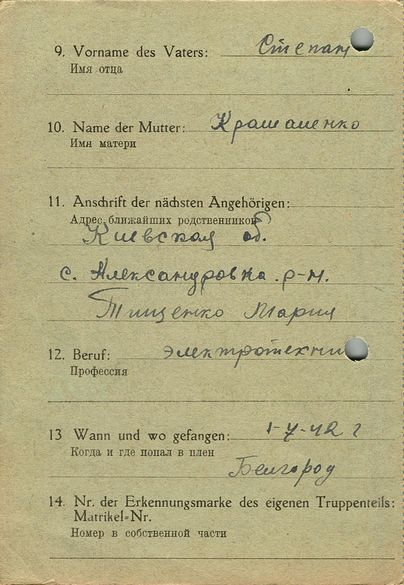 9. Vorname des Vaters: Степан
Имя отца
10. Name der Mutter: Крашаненко
Имя матери
11. Anschrift der nächsten Angehörigen:
Адрес ближайших родственников
Киевская об.
с. Александровка р-н.
Тищенко Мария
12. Beruf: электротехни
Профессия
13 Wann und wo gefangen: 1-7-42 г
Когда и где попал в плен
Белгород
14. Nr. der Erkennungsmarke des eigenen Truppenteils:
Matrikel=Nr.
Номер в собственной части